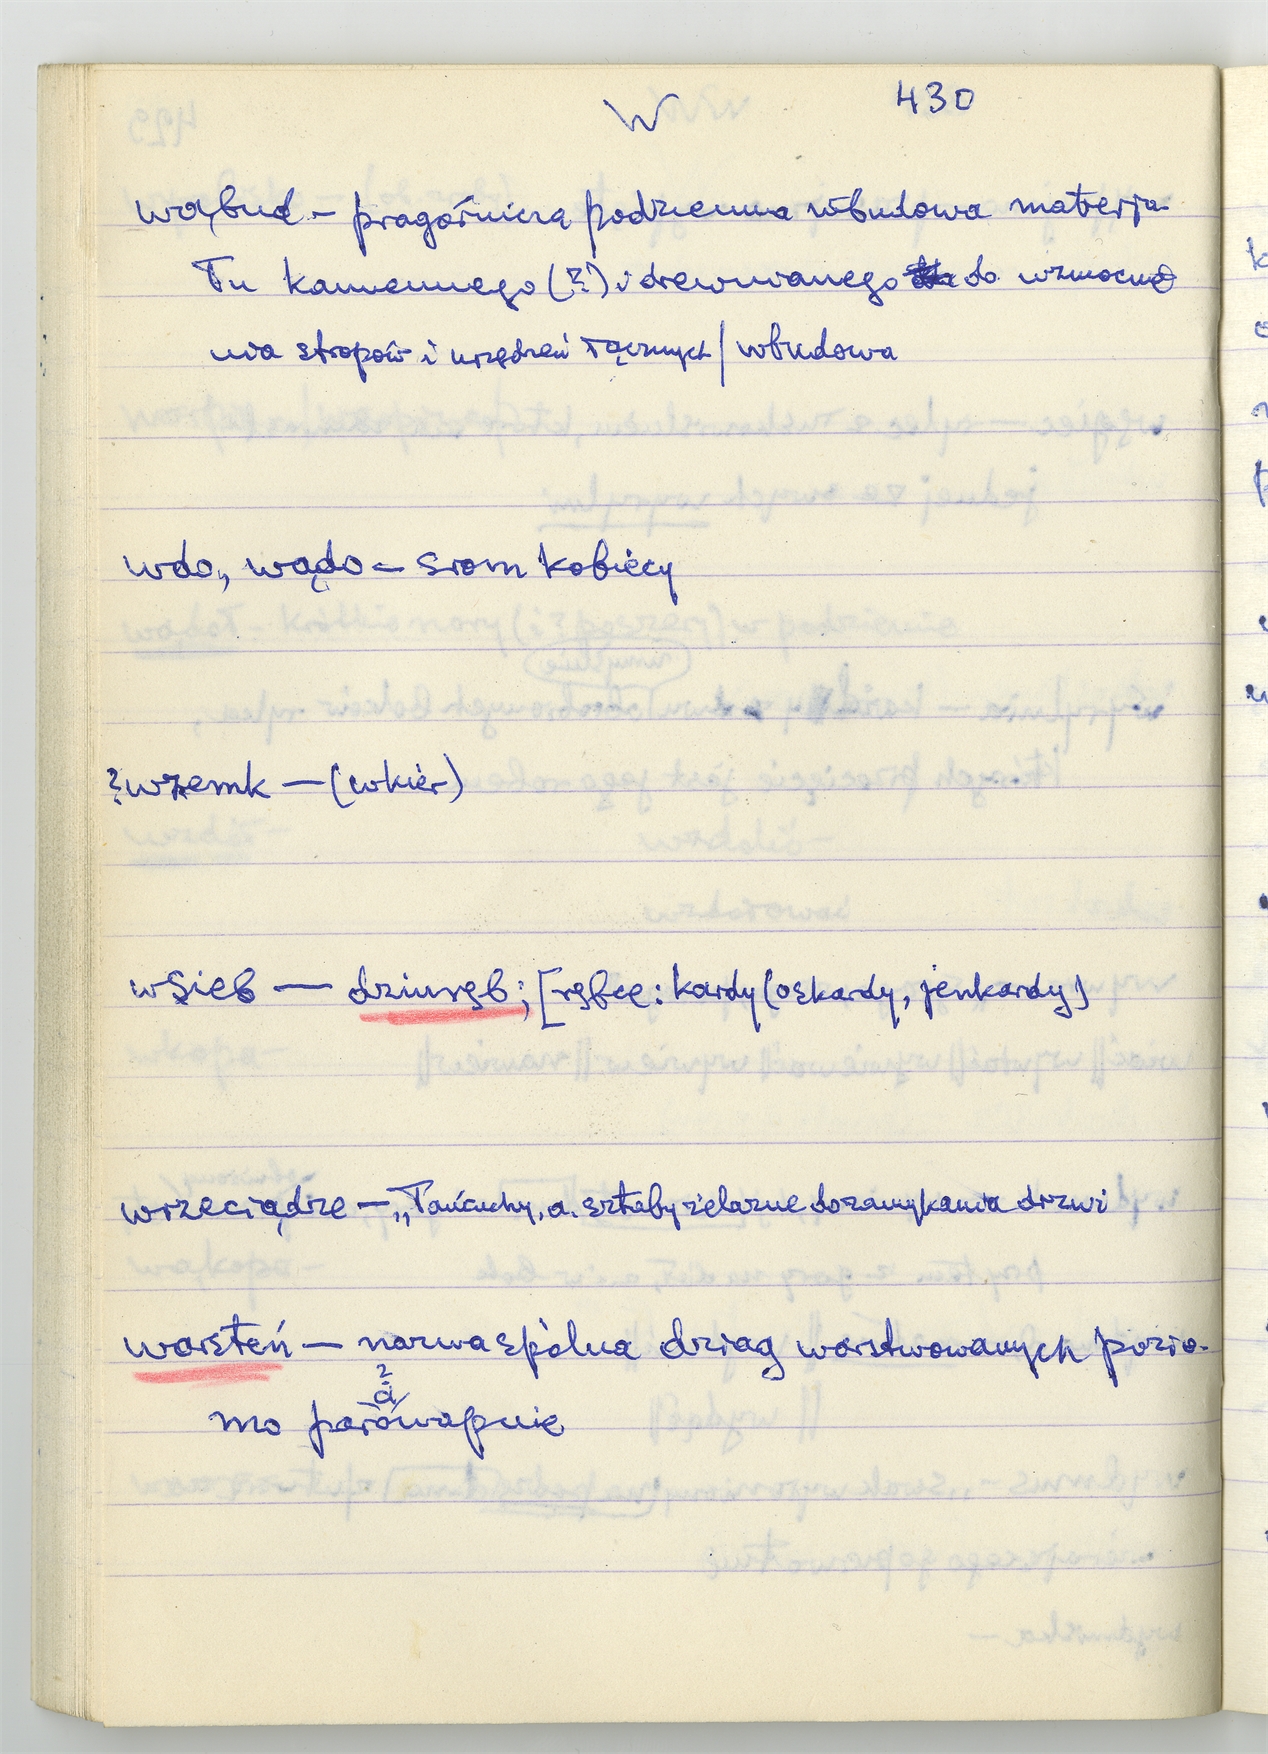 W 430
wąbud – pragórniczą podziemna wbudowa materja-
łu kamiennego (?) i drewnianego do wzmocnie
nia stropów i urządzeń łącznych / wbudowa
wdo, wądo – srom kobiecy
? wzemk – (wkier)
wsieb – dziuręb; [ rębce: kardy (oskardy, jenkardy)
wrzeciądze – „łańcuchy, a. sztaby żelazne do zamykania drzwi
warsteń – nazwa spólna dziag warstwowanych pozio-
mo